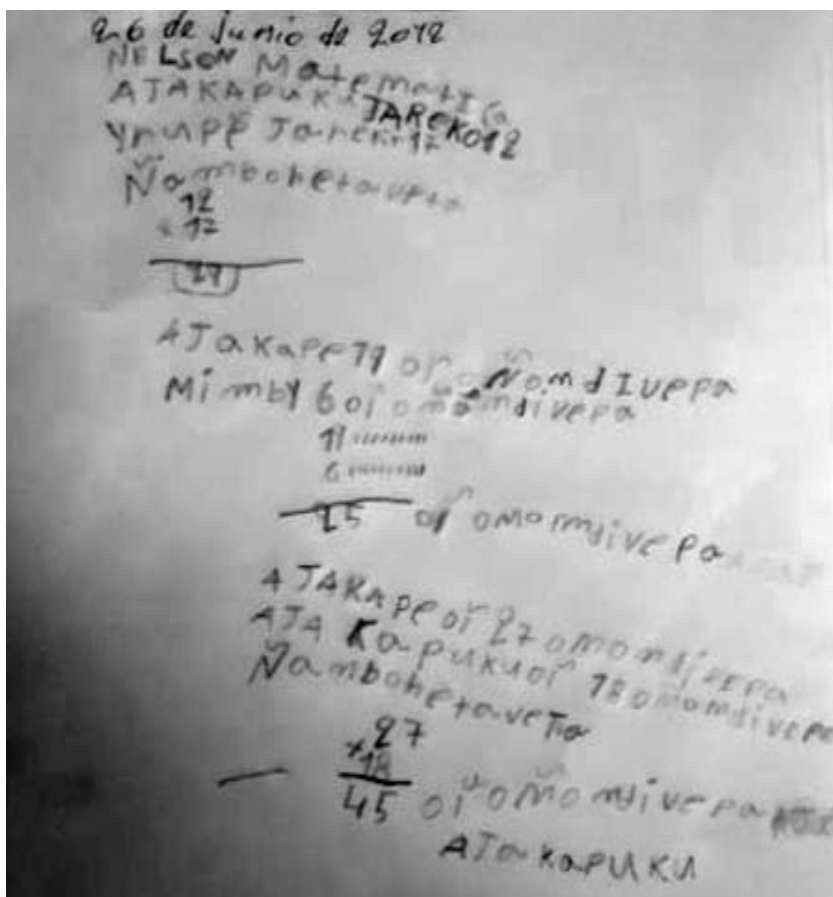 26 de Junio de 2012
NELSON Matematica
AJAKAPUKU JAREKO12
YRUPẼ Jareko17
Ñambohetaveta
12
17
29
AJaKaPe 19 oĩ oÑomdIvepa
Mimby 6 oĩ oñomdivepa
6
25 oĩ oñomomdivepa
AJAKAPe oĩ 27 omomdivepa
AJA KaPuKu oĩ 18 omomdivepa
Ñambohetaveta
27
+18
45 oĩ oñomomdivepa
AJaKaPUKU